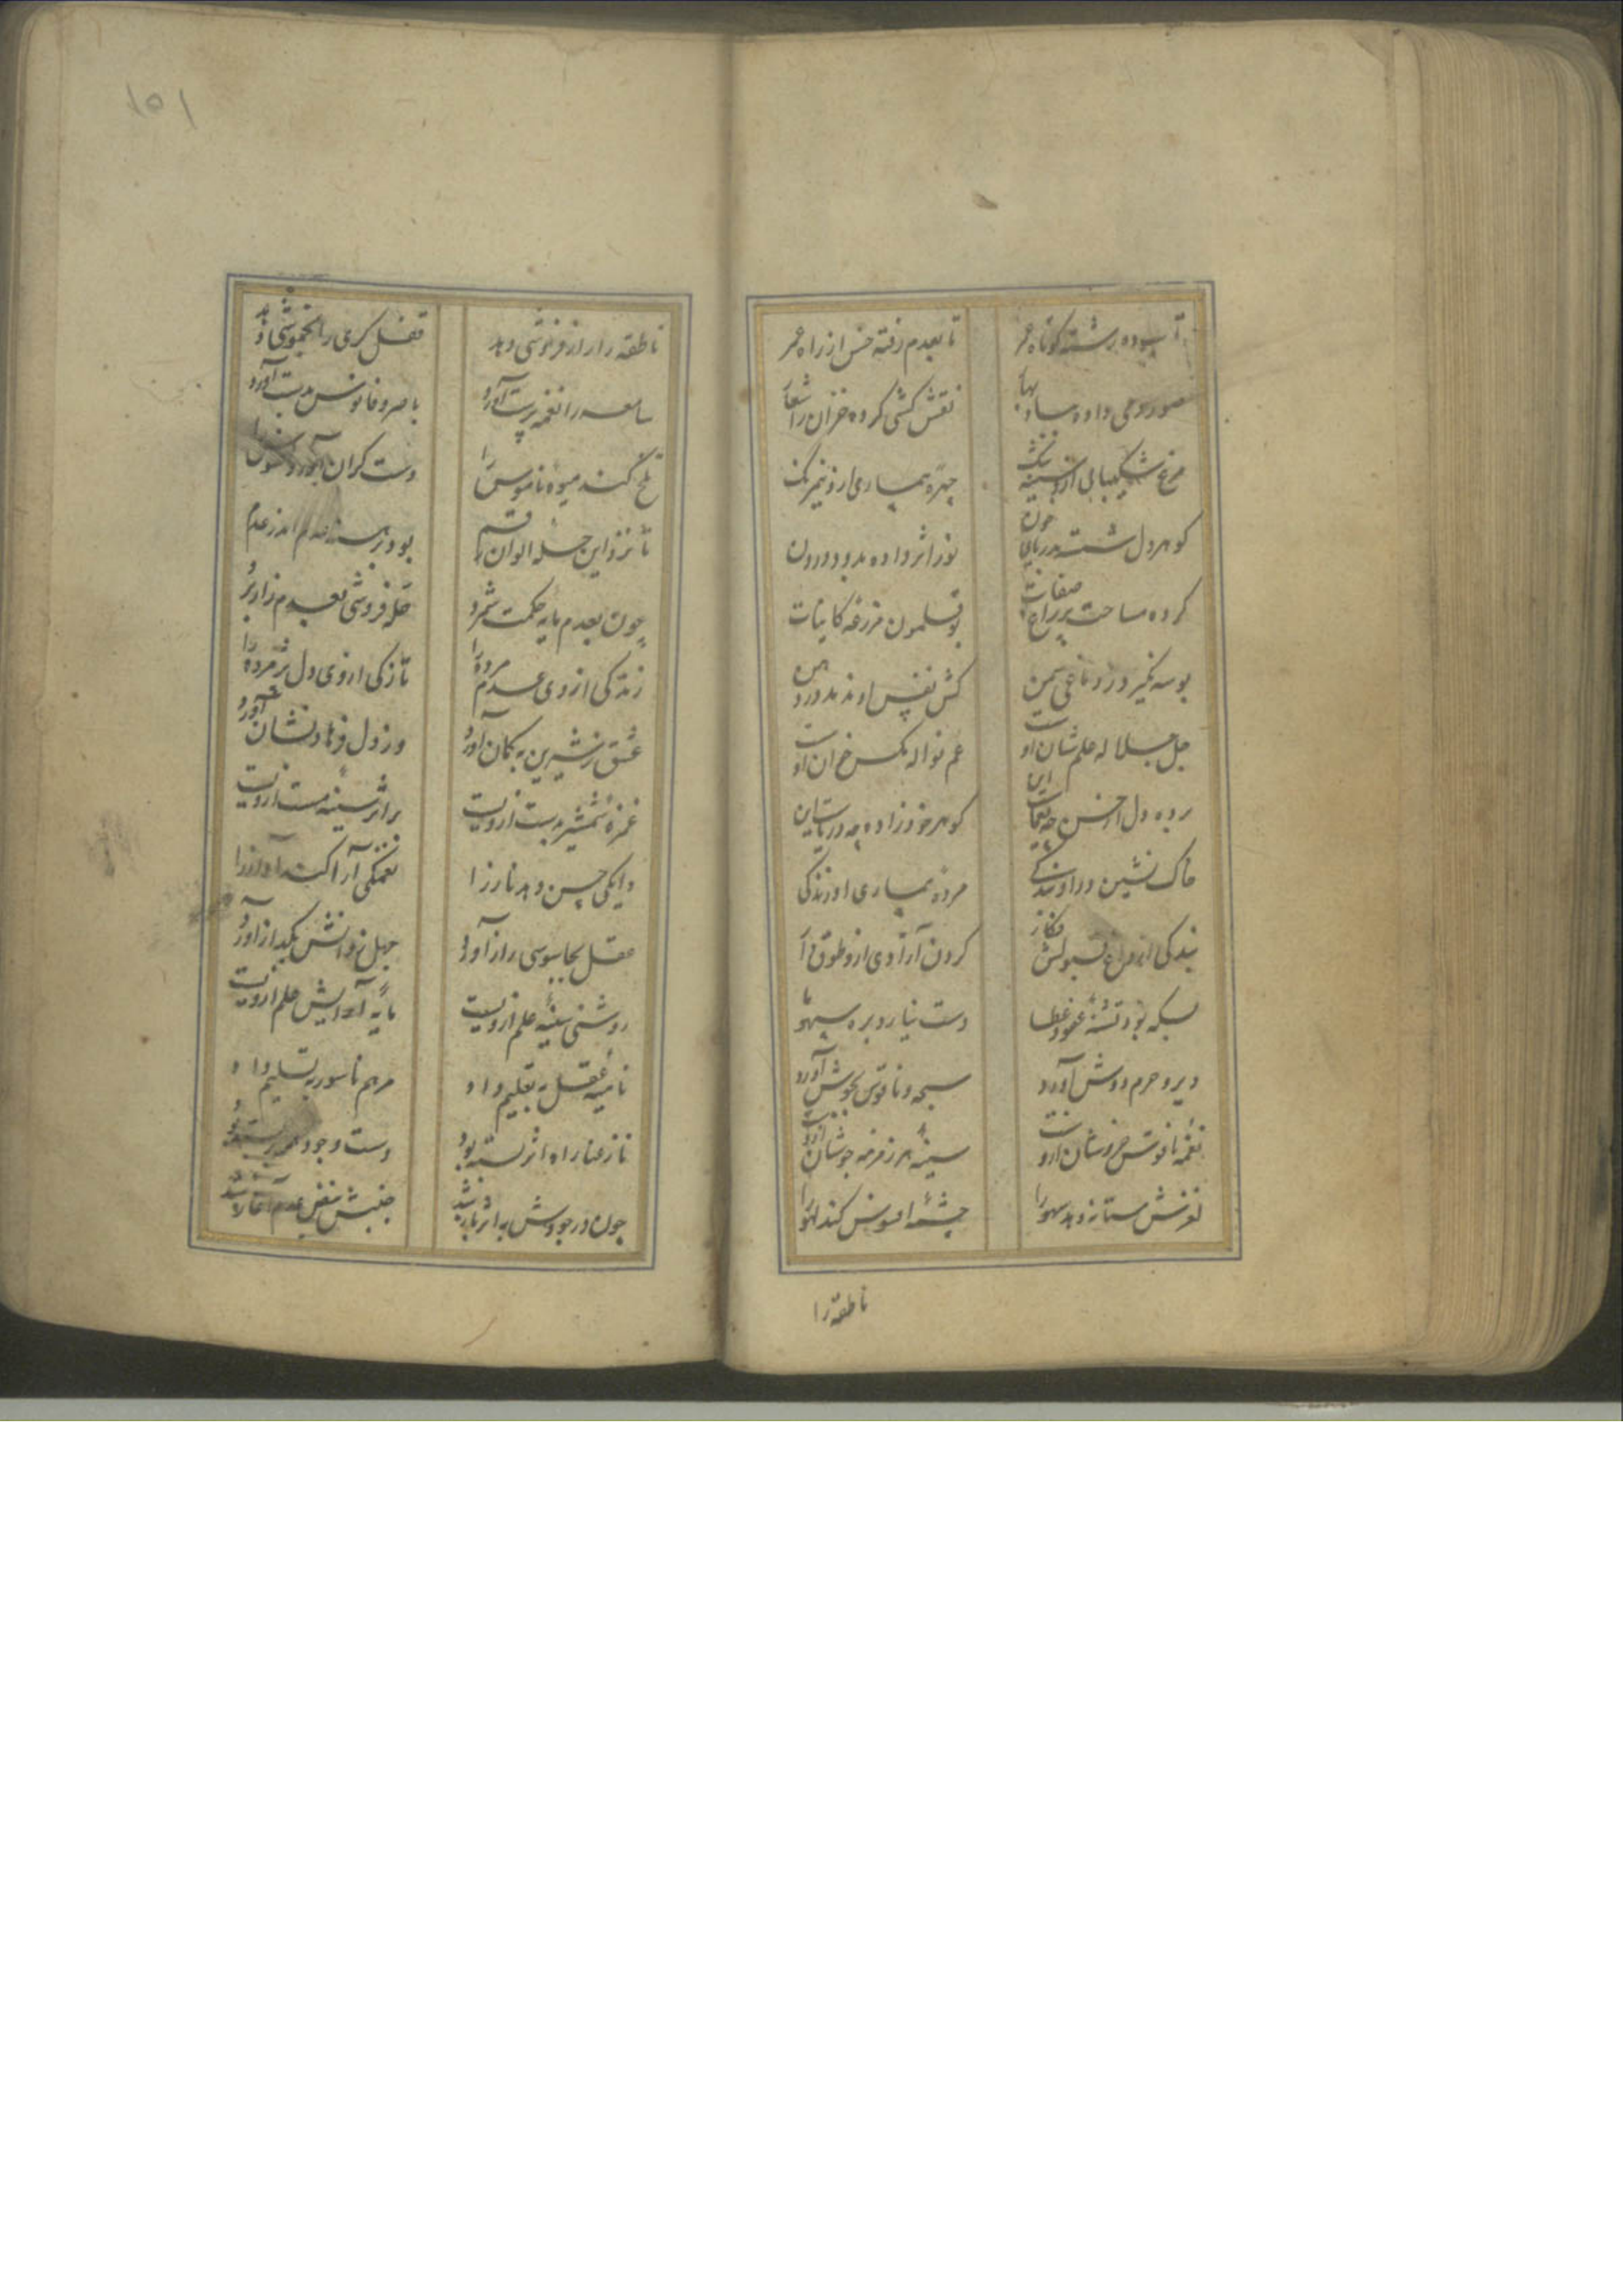 تاب ده رشته کوتاه عمر
تا بعدم رفته خس از راه عمر
نقش کشی کرده خزان را شعار
مرغ شکیبایی ازو سینه تنگ
چهره بیماری ازو نیم رنگ
گوهر دل شسته بدریای خون
نور اثر داده بدود درون
کرده مساحت گر باغ صفات
بوقلمون مزرعه کاینات
بوسه نگیرد ز دماغی سمن
کش نفس او ندمد در دهن
جل جلاله علم شان اوست
عم نواله مگس خوان اوست
گوهر خود زاده چه دریاست این
خاک نشین در او بندگی
مرده بیماری او زندگی
بندگی از داغ قبولش
گردن آزادی ازو طوق دار
بسکه بود تشنه عفو و عطا
دست نیارد بره سهو ما
دیر و حرم دوش آورد
سبحه و ناقوس بجوش آورد
نغمه ناقوس خروشان ازوست
سینه هر زمزمه جوشان ازوست
لغزش مستانه دهد سهو را
چشمه افسوس کند لهو را
ناطقه را
۱۵۱
ناطقه را راز فروشی دهد
قفل گری را بخموشی دهد
سامعه را نغمه پرست آورد
باصره فانوس بدست آورد
تلخ کند میوه ناموس را
دست گران آورد افسوس را
تا نزد این جمله الوان رقم
بود برهنه قدم اندر عدم
چون بعدم مایه حکمت شمرد
حله فروشی بعدم زاد برد
زندگی از وی عدم مرده را
تازگی از وی دل پژمرده را
عشق ز شیرین به کمان آورد
وز دل فرهاد نشان آورد
غمزه شمشیر بدست ازویست
بر اثر سینه مست ازویست
دایگی حسن دهد ناز را
نغمگی آرا کند آواز را
عقل بجاسوسی راز آورد
جهل ز دانش بگداز آورد
روشنی سینه علم ازویست
مایه آرایش علم ازویست
نامیه عقل به تعلیم داد
مرهم ناسور به تسلیم داد
ناز عنا راه اثر بسته بود
دست وجود
چون در جودش به اثر باز شد
جنبش نبض عدم آغاز شد